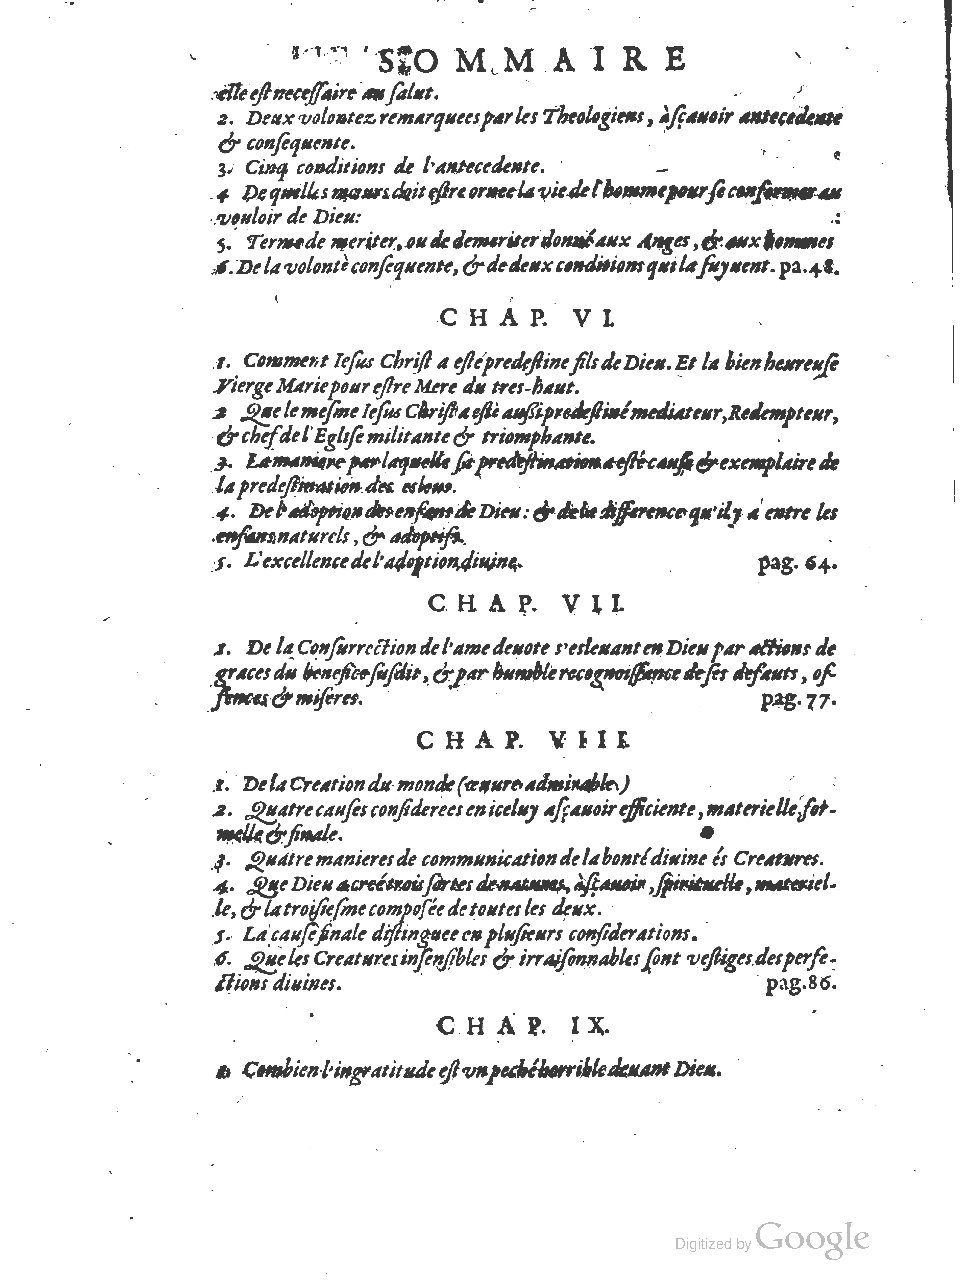 SOMMAIRE
elle eſt neceſſaire au ſalut.
2. Deux volontez remarquees par les Theologiens, àſçauoir antecedente
& conſequente.
3. Cinq conditions de l'antecedente.
4 De quelles mœurs doit eſtre ornee la vie de l'homme pour ſe conformer au
vouloir de Dieu:
5. Terme de meriter, ou de demeriter donné aux Anges, & aux hommes
6. De la volontè conſequente, & de deux conditions qui la ſuyuent. pa.48.
CHAP. VI.
1. Comment Ieſus Chriſt a eſté predeſtine fils de Dieu. Et la bien heureuſe
Vierge Marie pour eſtre Mere du tres-haut.
2 Que le meſme Ieſus Chriſt a eſtè auſsi predeſtiné mediateur, Redempteur,
& chef de l'Egliſe militante & triomphante.
3. La maniere par laquelle ſa predeſtination a eſté cauſe & exemplaire de
la predeſtination des esleus.
4. De l'adoption des enfans de Dieu: & de la difference qu'il y a entre les
enfans naturels, & adoptifs.
5. L'excellence de l'adoption diuine. pag. 64.
CHAP. VII.
1. De la Conſurrection de l'ame deuote s'esleuant en Dieu par actions de
graces du benefice ſuſdit, & par humble recognoiſſance de ſes defauts, of-
fences & miſeres. pag. 77.
CHAP. VIII.
1. De la Creation du monde (œuure admirable)
2. Quatre cauſes conſiderees en iceluy aſçauoir efficiente, materielle, for-
melle & finale.
3. Quatre manieres de communication de la bonté diuine és Creatures.
4. Que Dieu a creé trois ſortes de natures, àſçauoir, ſpirituelle, materiel-
le, & la troiſieſme compoſée de toutes les deux.
5. La cauſe finale diſtinguee en pluſieurs conſiderations.
6. Que les Creatures inſenſibles & irraiſonnables ſont veſtiges des perfe-
ctions diuines. pag.86.
CHAP. IX.
1. Combien l'ingratitude eſt vn peché horrible deuant Dieu.
Digitized by Google